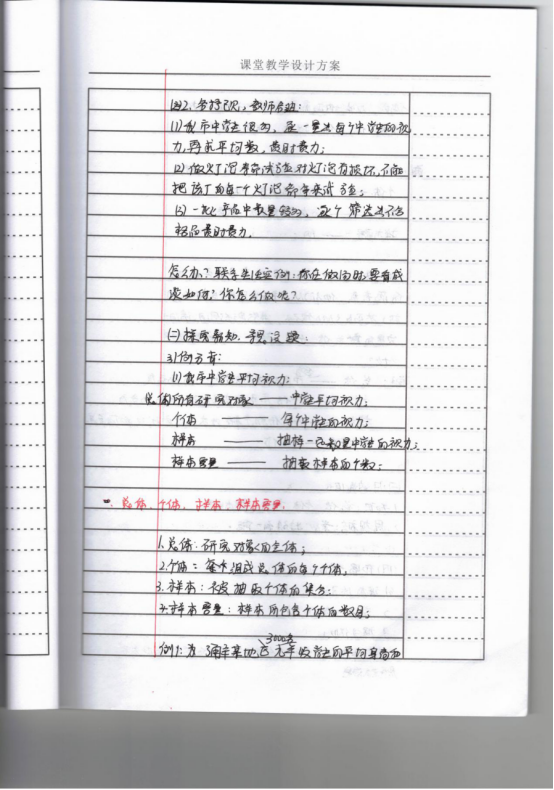 课堂教学设计方案
2、 教师总结:
(1)我市中学生很多,逐一量出每个中学生的视
力,再求平均数,费时费力;
(2)做灯泡寿命试验对灯泡有损坏,不能
把该厂的每一个灯泡都拿来试验;
(3)一批产品中数量较多,逐个筛选出不合
格品费时费力.
怎么办?联系生活实例:你在做汤时,要看咸
淡如何?你怎么做呢?
(二)探究新知.
引例分析:
(1)我市中学生平均视力:
总体所有研究对象——中学生平均视力;
个体 —— 每个中学生的视力;
样本 —— 抽样一定数量中学生的视力;
样本容量 —— 抽取样本的个数;
一. 总体、个体、样本、样本容量.
1.总体:研究对象的全体;
2.个体:每个组成总体的每个个体;
3.样本:被抽取个体的集合;
4.样本容量:样本所包含个体的数目;
3000名
例1:为了 某地区 学生的平均身高